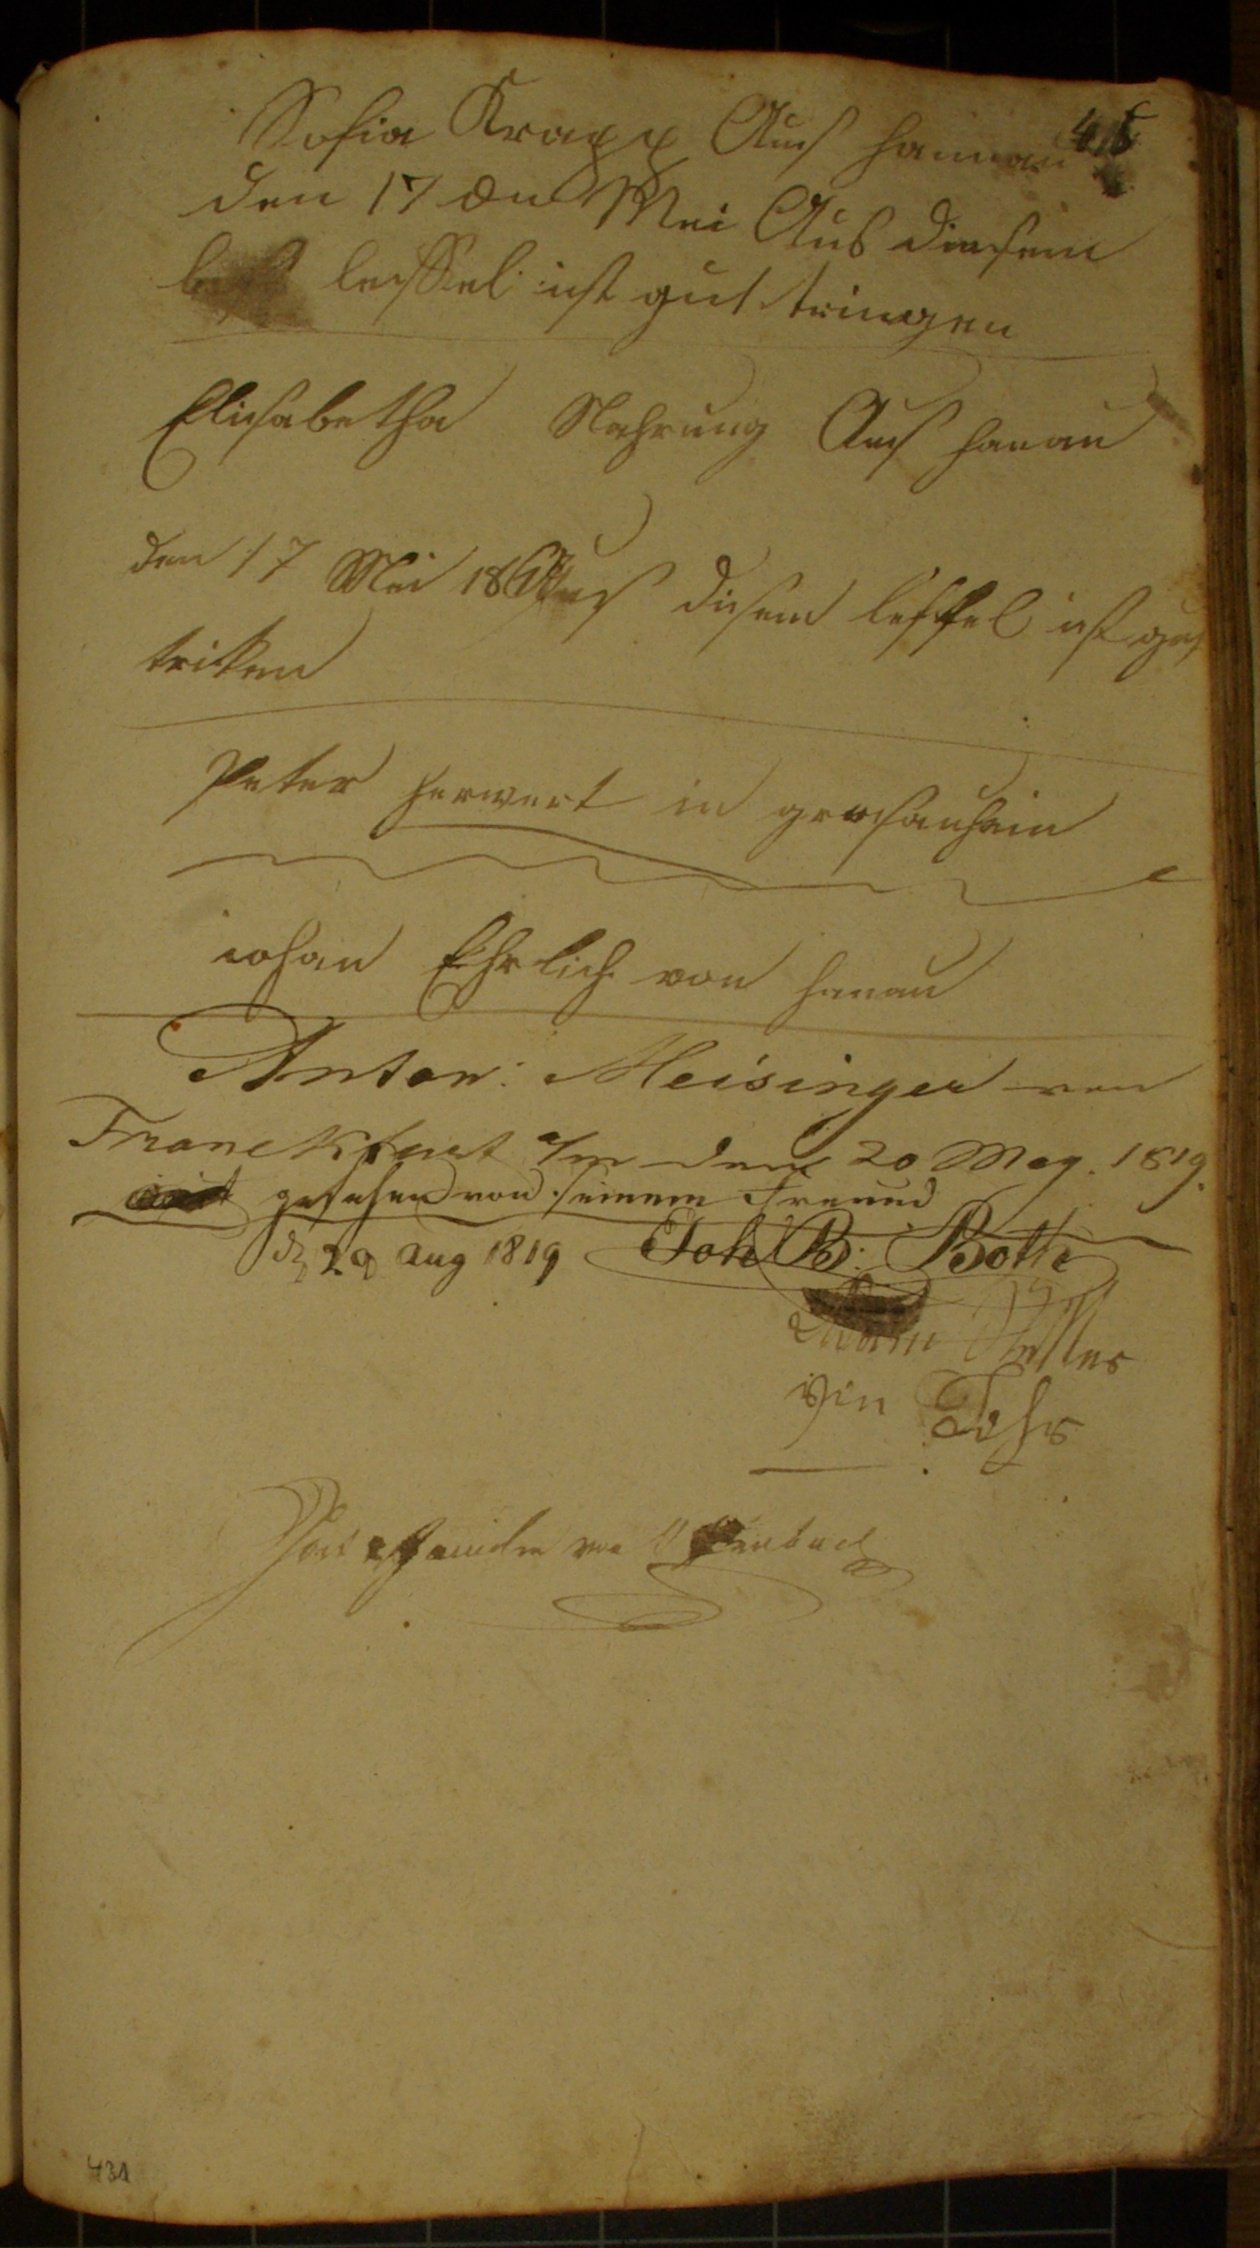 Sofia Krapp Aus hannau 415
den 17 den Mei Aus diesem
leffel ist gut tringen
Elisabetha Nahrung Aus hanau
den 17 Mei 18 Aus diesem leffel ist gut
trikken
Peter herwert in grosauheim
iohan Ehrlich von hanau
Anton: Meisinger von
Franckfurt a/m den 20 May. 1819.
gesehen von seinem Freund
29 Aug 1819 Joh B: Both
von
von
431